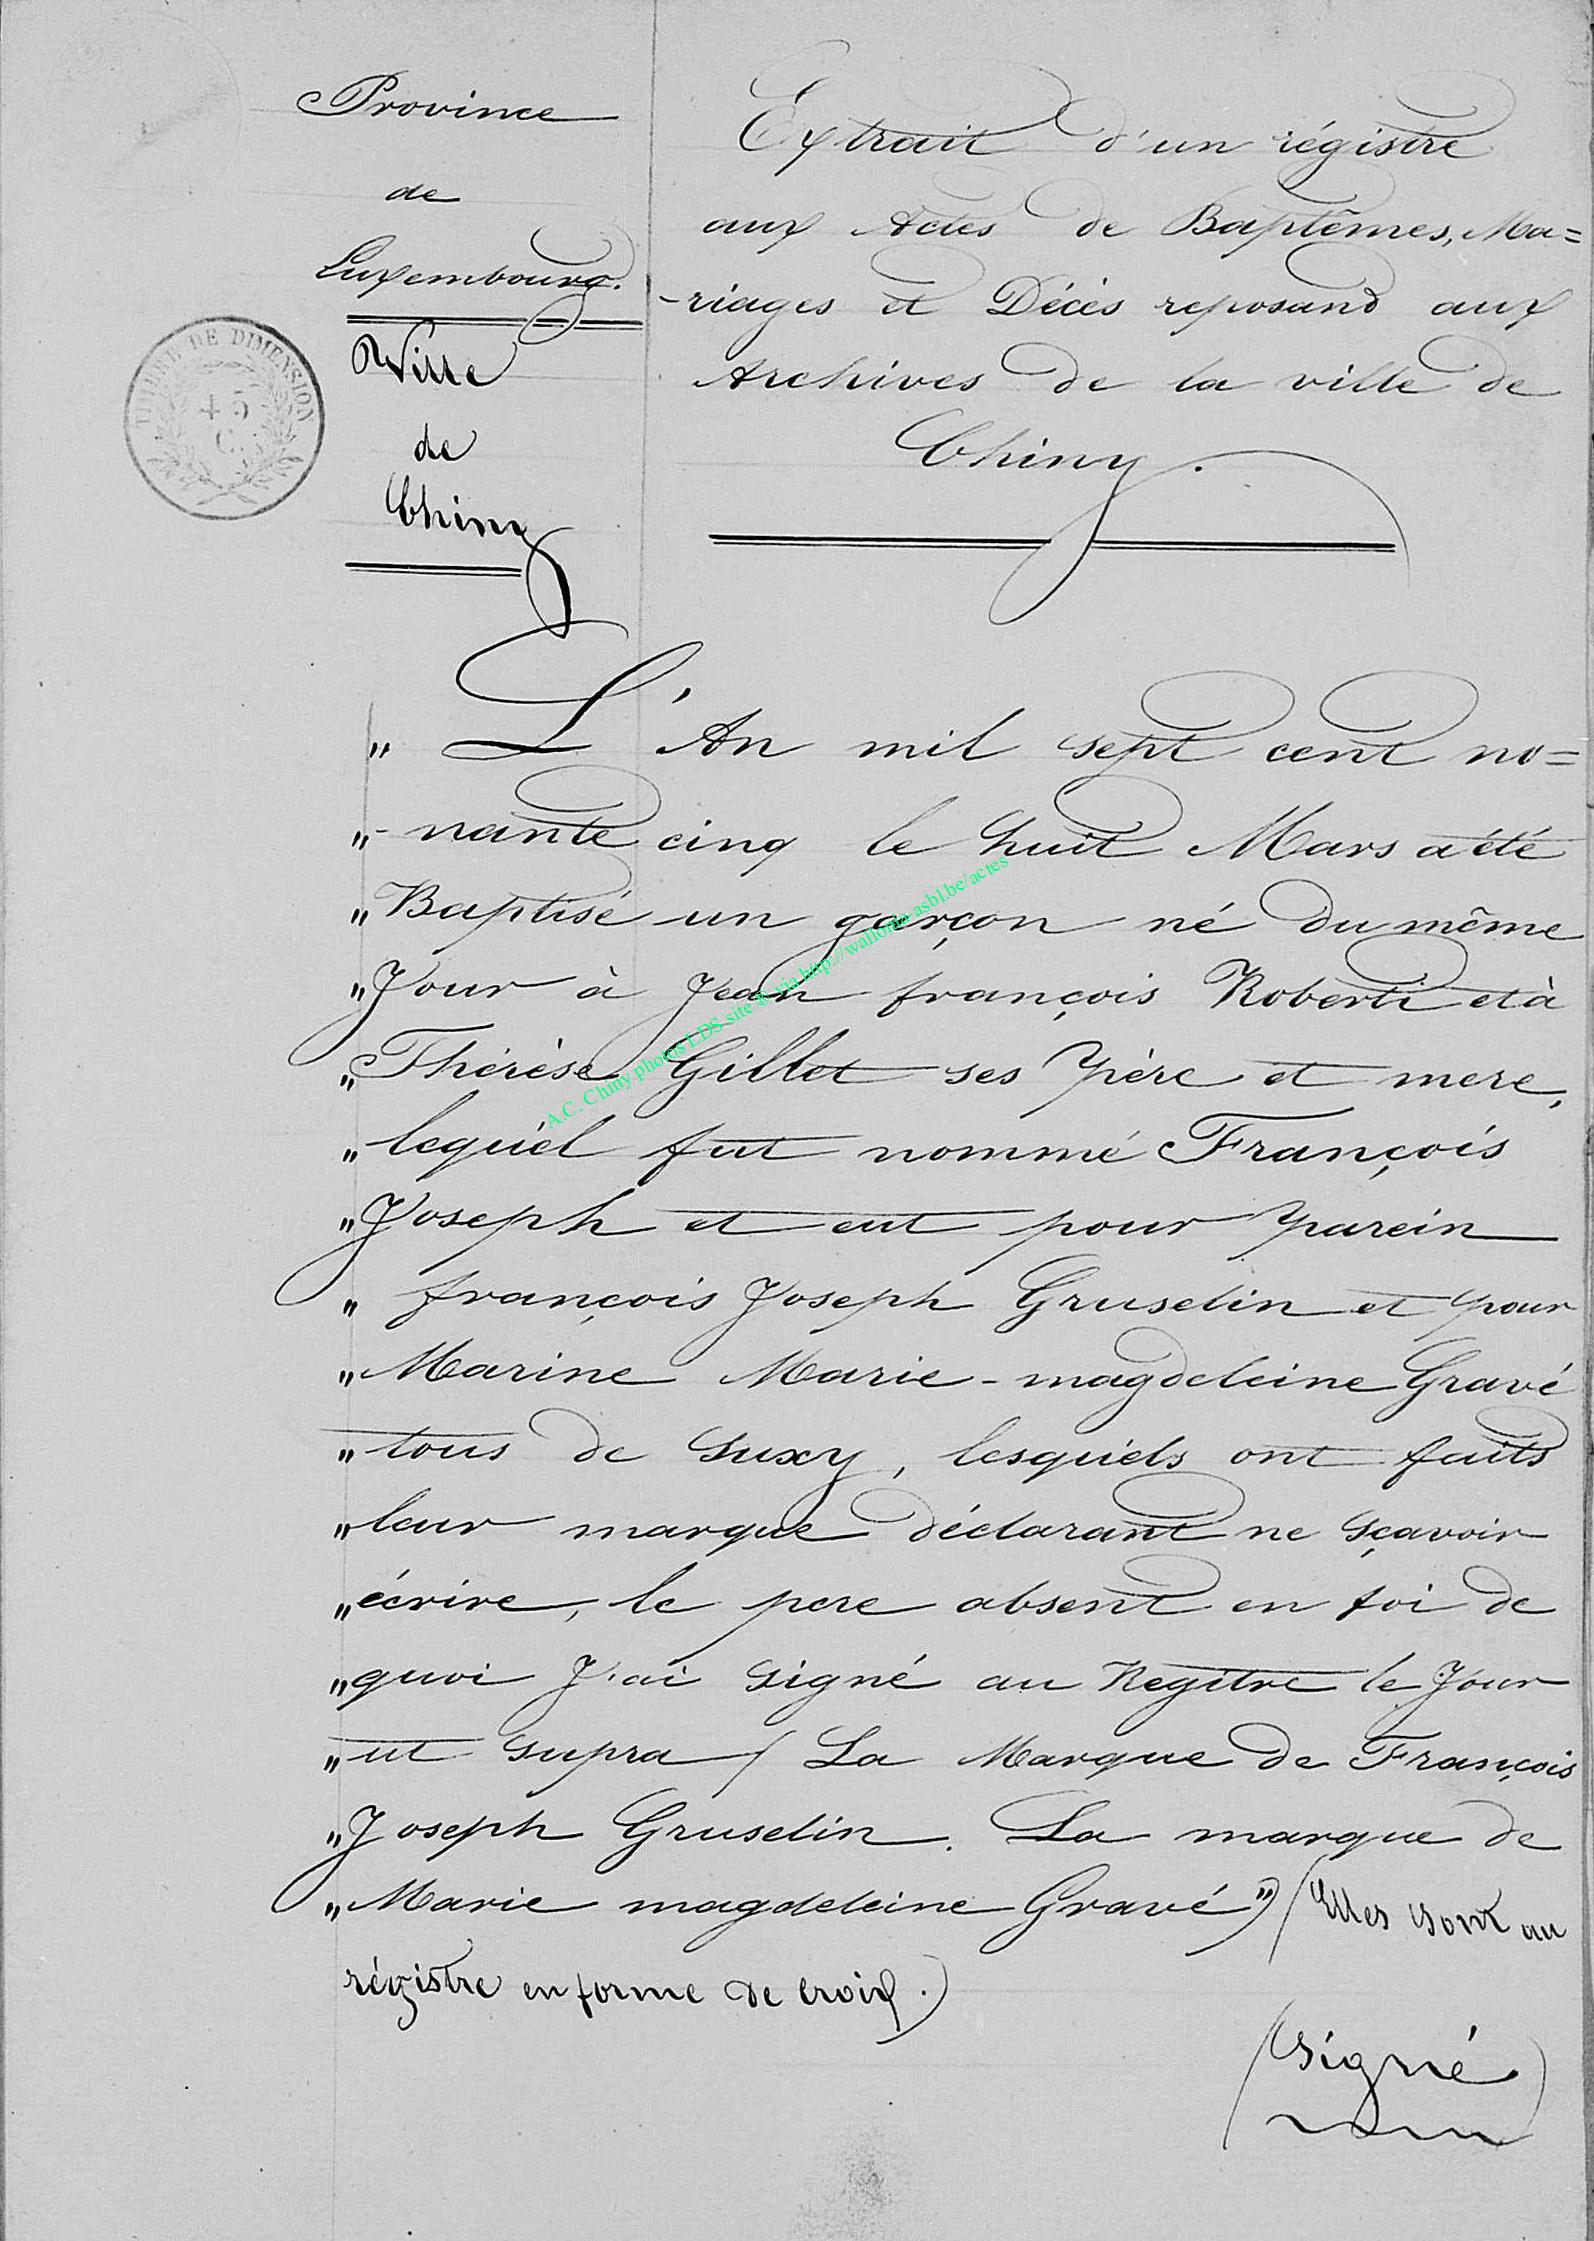 Province
de
Luxembourg.
Ville
de
Chiny
TIMBRE DE DIMENSION
45
C.
Extrait d'un régistre
aux Actes de Baptêmes, Ma=
-riages et Décès reposand aux
Archives de la ville de
Chiny.
„ L'An mil sept cent no=
„- nante cinq le huit Mars a été
„ Baptisé un garçon né du même
„ Jour à Jean françois Roberti et à
„ Thérèse Gillet ses père et mere,
„ lequel fut nommé François
„ Joseph et eut pour parein
„ françois Joseph Gruselin et pour
„ Marine Marie-magdeleine Gravé
„ tous de Suxy, lesquels ont faits
„ leur marque déclarant ne sçavoir
„ écrire, le pere absent en foi de
„ quoi J'ai signé au Regitre le Jour
„ ut supra / La Marque de François
„ Joseph Gruselin. La marque de
„ Marie magdeleine Gravé") (Elles sont au
régistre en forme de croix.)
(signé)
A.C. Chiny photos LDS site ® via http://wallonia-asbl.be/actes